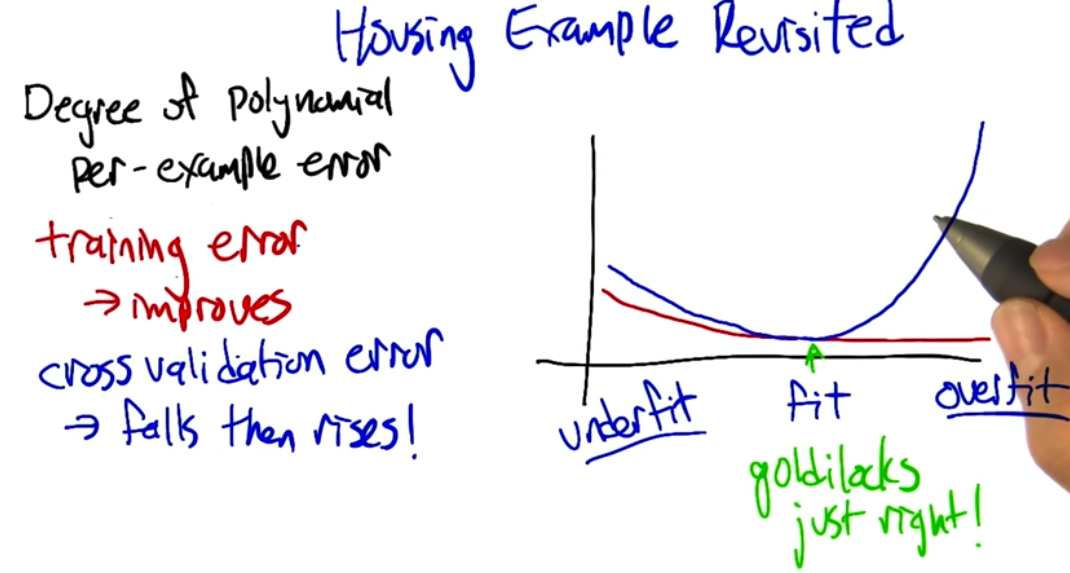 Housing Example Revisited
Degree of polynomial
per-example error
training error
→ improves
cross validation error
→ falls then rises!
underfit
fit
overfit
goldilocks
just right!